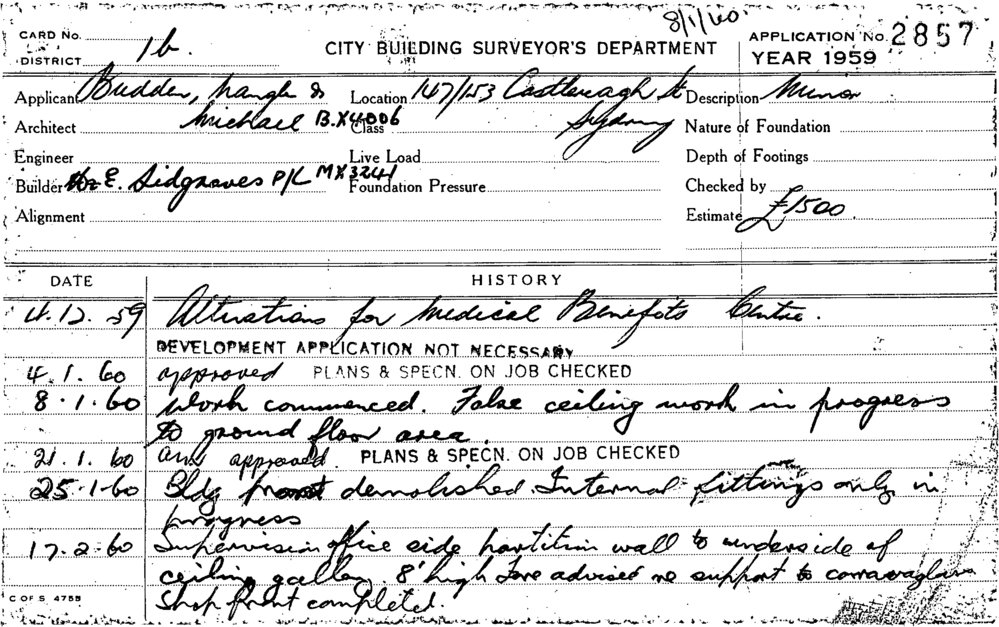 8/1/60
CARD No.
DISTRICT 1b
CITY BUILDING SURVEYOR'S DEPARTMENT
APPLICATION No. 2857
YEAR 1959
Applicant Budden, Nangle &
Michael B.X4006
Location 147/153 Castlereagh St
Sydney
Description Minor
Architect
Class
Nature of Foundation
Engineer
Live Load
Depth of Footings
Builder E. Sidgraves P/L MX3241
Foundation Pressure
Checked by
Alignment
Estimate £1500
DATE
HISTORY
4.12.59 Alterations for Medical Benefits Centre.
DEVELOPMENT APPLICATION NOT NECESSARY
4.1.60 approved PLANS & SPECN. ON JOB CHECKED
8.1.60 Work commenced. False ceiling work in progress
to ground floor area.
21.1.60 approved. PLANS & SPECN. ON JOB CHECKED
25-1-60 Bldg front demolished. Internal fittings only in
progress
17-2-60 Supervision office side partition wall to underside of
ceiling 8' high advised re support to
Shop front completed.
C OF S 475B